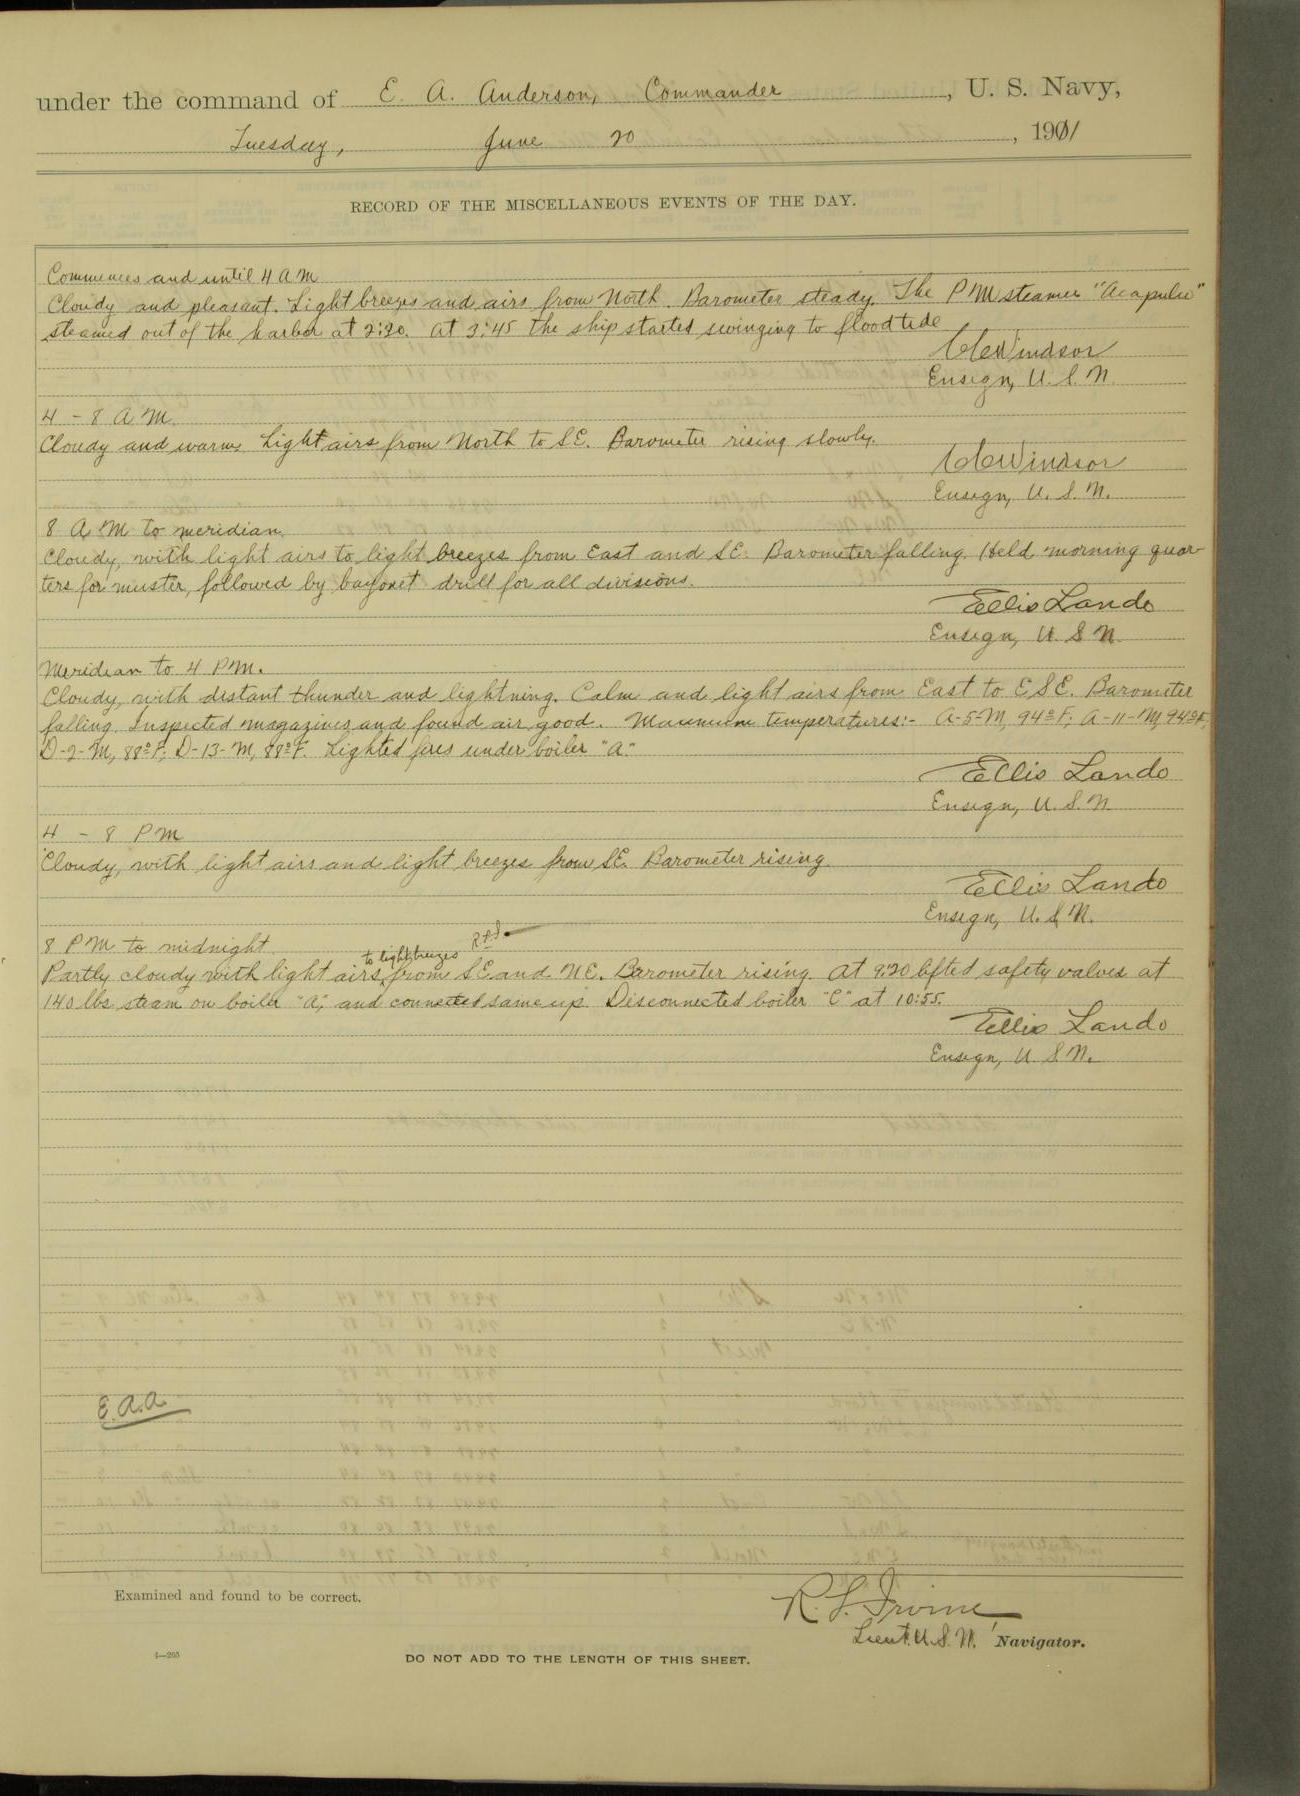 under the command of E. A. Anderson, Commander, U. S. Navy,
Tuesday, June 20, 1911
RECORD OF THE MISCELLANEOUS EVENTS OF THE DAY.
Commences and until 4 A M
Cloudy and pleasant. Light breezes and airs from North. Barometer steady. The P M steamer "Acapulco"
steamed out of the harbor at 2:20. At 3:45 the ship started swinging to flood tide
C C Windsor
Ensign, U. S. N.
4 - 8 A M.
Cloudy and warm. Light airs from North to SE. Barometer rising slowly.
C C Windsor
Ensign, U. S. N.
8 A M to meridian.
Cloudy, with light airs to light breezes from East and SE. Barometer falling. Held morning quar-
ters for muster, followed by bayonet drill for all divisions.
Ellis Lando
Ensign, U. S N.
Meridian to 4 P M.
Cloudy, with distant thunder and lightning. Calm and light airs from East to ESE. Barometer
falling. Inspected magazines and found air good. Maximum temperatures:- A-5-M, 94°F; A-11-M, 94°F;
D-2-M, 88°F; D-13-M, 88°F. Lighted fires under boiler "A."
Ellis Lando
Ensign, U. S. N.
4 - 8 P M
Cloudy, with light airs and light breezes from SE. Barometer rising.
Ellis Lando
Ensign, U. S. N.
8 P M to midnight.
to light breezes
Partly cloudy with light airs, from SE and NE. Barometer rising. At 9:20 lifted safety valves at
140 lbs. steam on boiler "A", and connected same up. Disconnected boiler "C" at 10:55.
Ellis Lando
Ensign, U. S. N.
E. A. A.
Examined and found to be correct.
R. S. Irvine
Lieut. U. S. N. , Navigator.
DO NOT ADD TO THE LENGTH OF THIS SHEET.